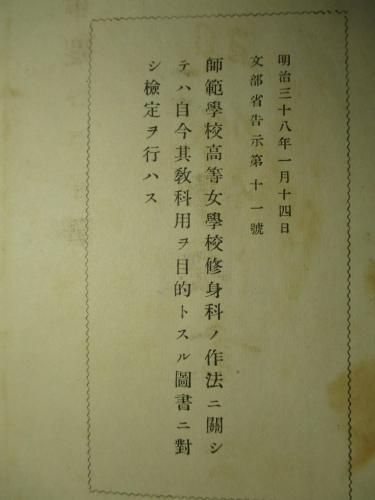 明治三十八年一月十四日
文部省告示第十一號
師範學校高等女學校修身科ノ作法ニ關シ
テハ自今其敎科用ヲ目的トスル圖書ニ對
シ檢定ヲ行ハス